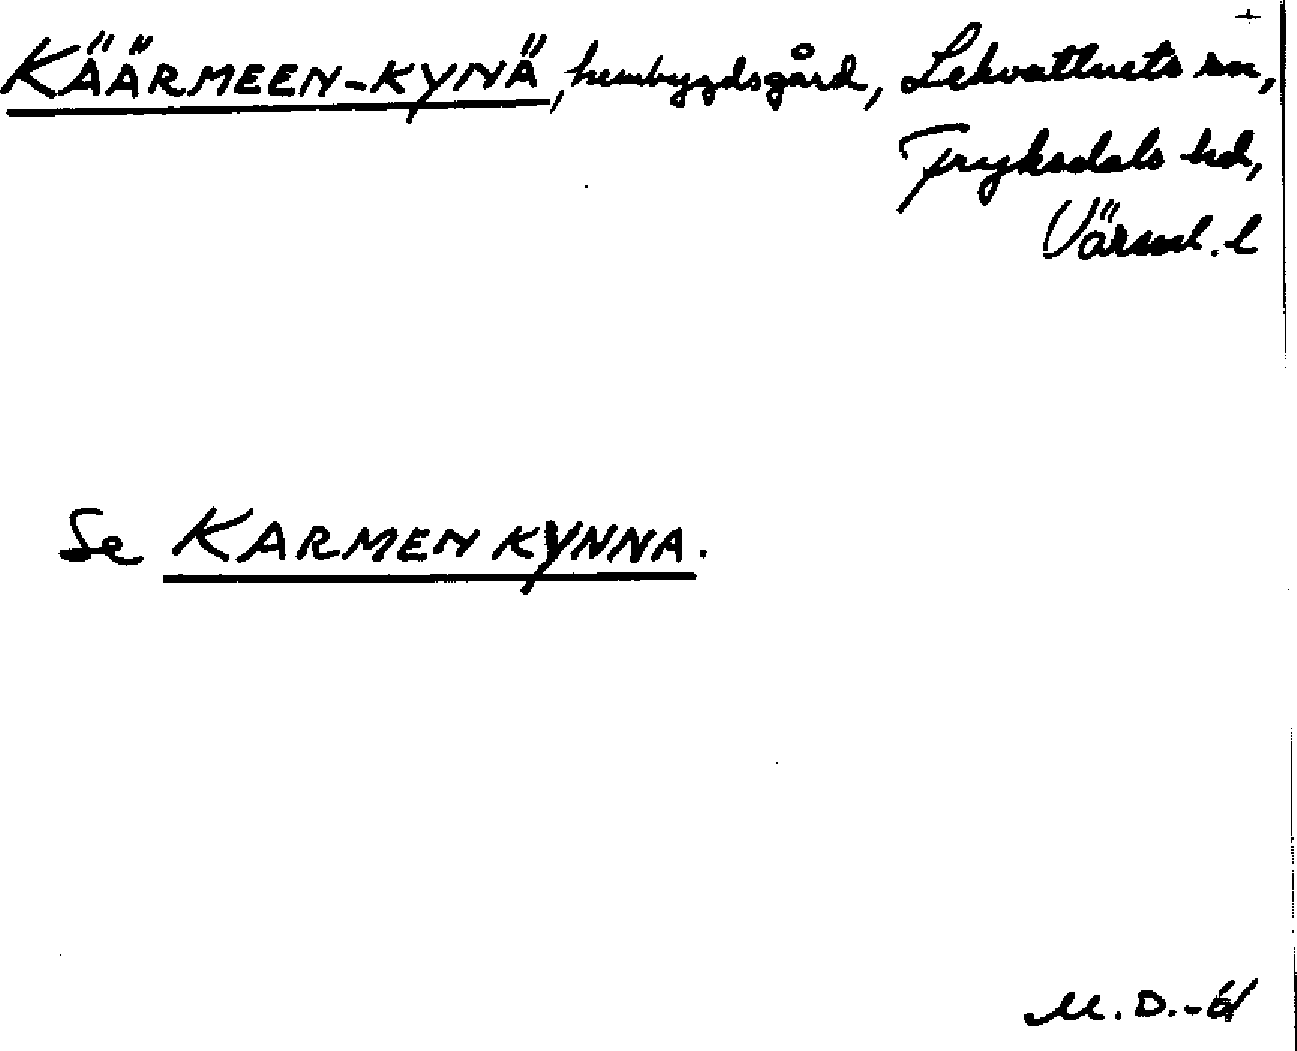 KÄÄRMEEN-KYNÄ, hembygdsgård, Lekvattnets sn,
Fryksdals hd,
Värml. l
Se KARMENKYNNA.
M.D.-61